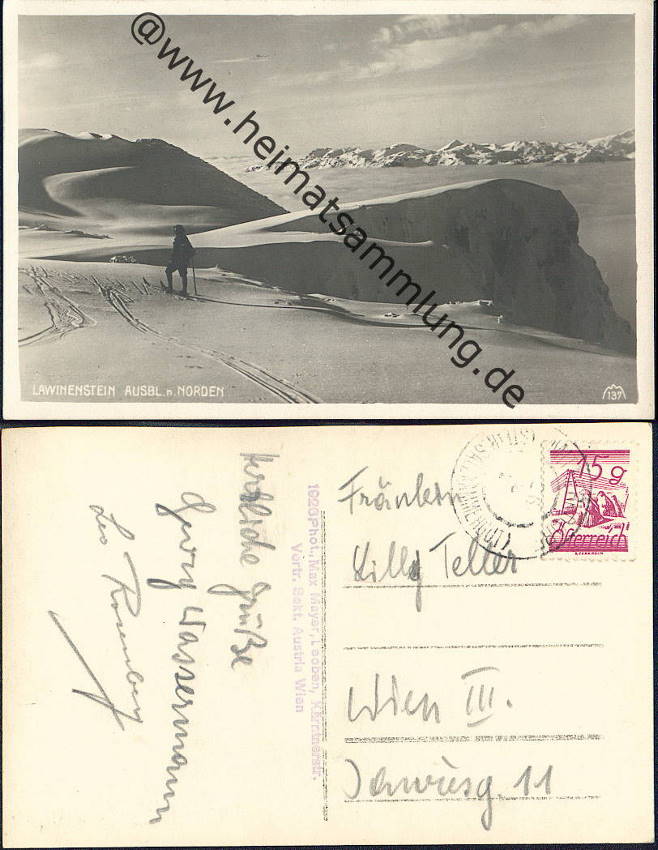 @www.heimatsammlung.de
LAWINENSTEIN AUSBL. n. NORDEN
137
Herzliche Grüße
Georg Wassermann
Leo Rosenberg
1926 Phot. Max Mayer, Leoben, Kärntnerstr.
Vertr. Sekt. Austria Wien
15 g
Österreich
Fräulein
Lilly Teller
Wien III.
11